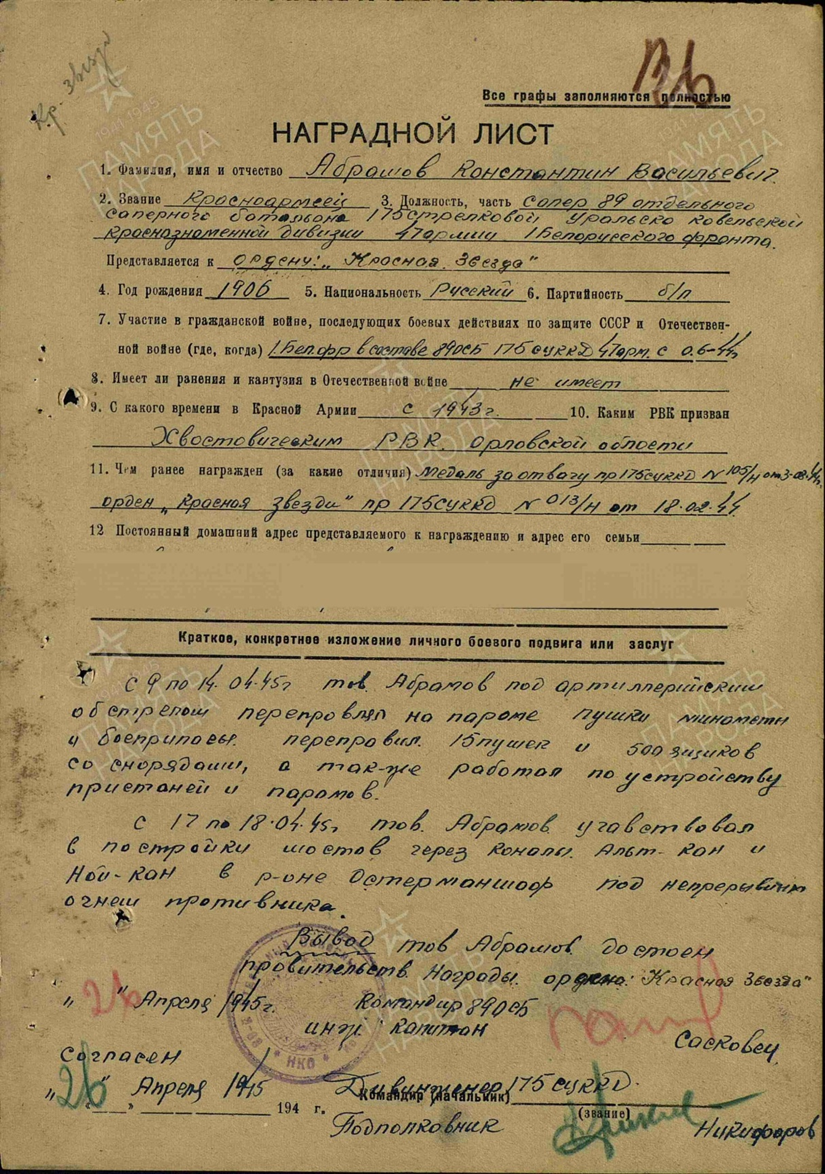 Кр. звезда
Все графы заполняются полностью
НАГРАДНОЙ ЛИСТ
1. Фамилия, имя и отчество Абрамов Константин Васильевич.
2. Звание Красноармеец 3. Должность, часть сапер 89 отдельного
саперного батальона 175 стрелковой Уральско Ковельской
краснознаменной дивизии 47 армии 1 Белорусского фронта.
Представляется к ордену: „Красная Звезда"
4. Год рождения 1906 5. Национальность Русский 6. Партийность б/п
7. Участие в гражданской войне, последующих боевых действиях по защите СССР и Отечествен-
ной войне (где, когда) 1 Бел.фр в составе 89осб 175 сукКд 47 арм. с 06-44г
8. Имеет ли ранения и кантузия в Отечественной войне не имеет
9. С какого времени в Красной Армии с 1943г. 10. Каким РВК призван
Хвостовическим РВК. Орловской области
11. Чем ранее награжден (за какие отличия) Медаль за отвагу пр 175сукКд N 105/н от 3-08-44г.
орден „Красная звезда" пр 175сукКд N 013/н от 18.02.44.
12 Постоянный домашний адрес представляемого к награждению и адрес его семьи
Краткое, конкретное изложение личного боевого подвига или заслуг
С 9 по 14.04.45г тов. Абрамов под артиллерийским
обстрелом переправлял на пароме пушки минометы
и боеприпасы. переправил 15 пушек и 500 ящиков
со снорядами, а так-же работал по устройству
пристаней и паромов.
С 17 по 18.04.45г тов. Абрамов учавствовал
в постройки мостов через каналы. Альт-кан и
Ной-кан в р-оне Остерманшоф под непрерывным
огнем противника.
Вывод тов Абрамов достоен
правительств. Награды ордена: "Красная Звезда"
„26" Апреля 1945г. Командир 89осб
инж. капитан Сасковец
Согласен
„26" Апреля 1945 Дивинженер 175 сукКд
194 г. Командир (начальник)
(звание)
Подполковник Никифоров
НКО
ПАМЯТЬ НАРОДА
1941-1945